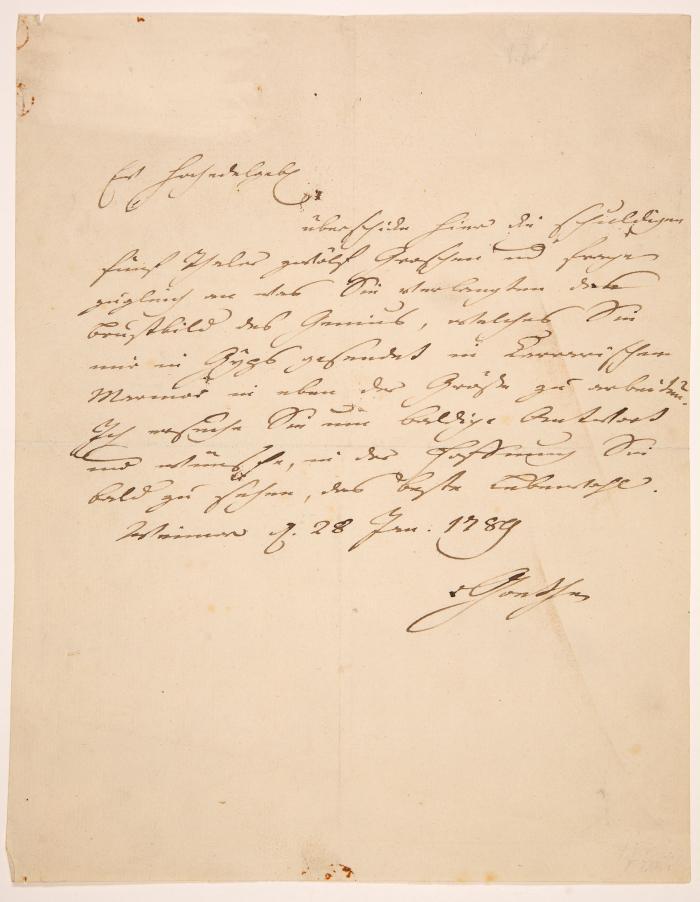 Ew Hochedelgeb
überschicke hier die schuldigen
fünf Thaler zwölf Groschen und frage
zugleich an was Sie verlangten das
Brustbild des Genius, welches Sie
mir in Gyps gesendet in Kararischen
Marmor in eben der Größe zu arbeiten.
Ich ersuche Sie um baldige Antwort
und wünsche, in der Hoffnung Sie
bald zu sehen, das beste Lebewohl.
Weimar d. 28 Jan. 1789
vGoethe